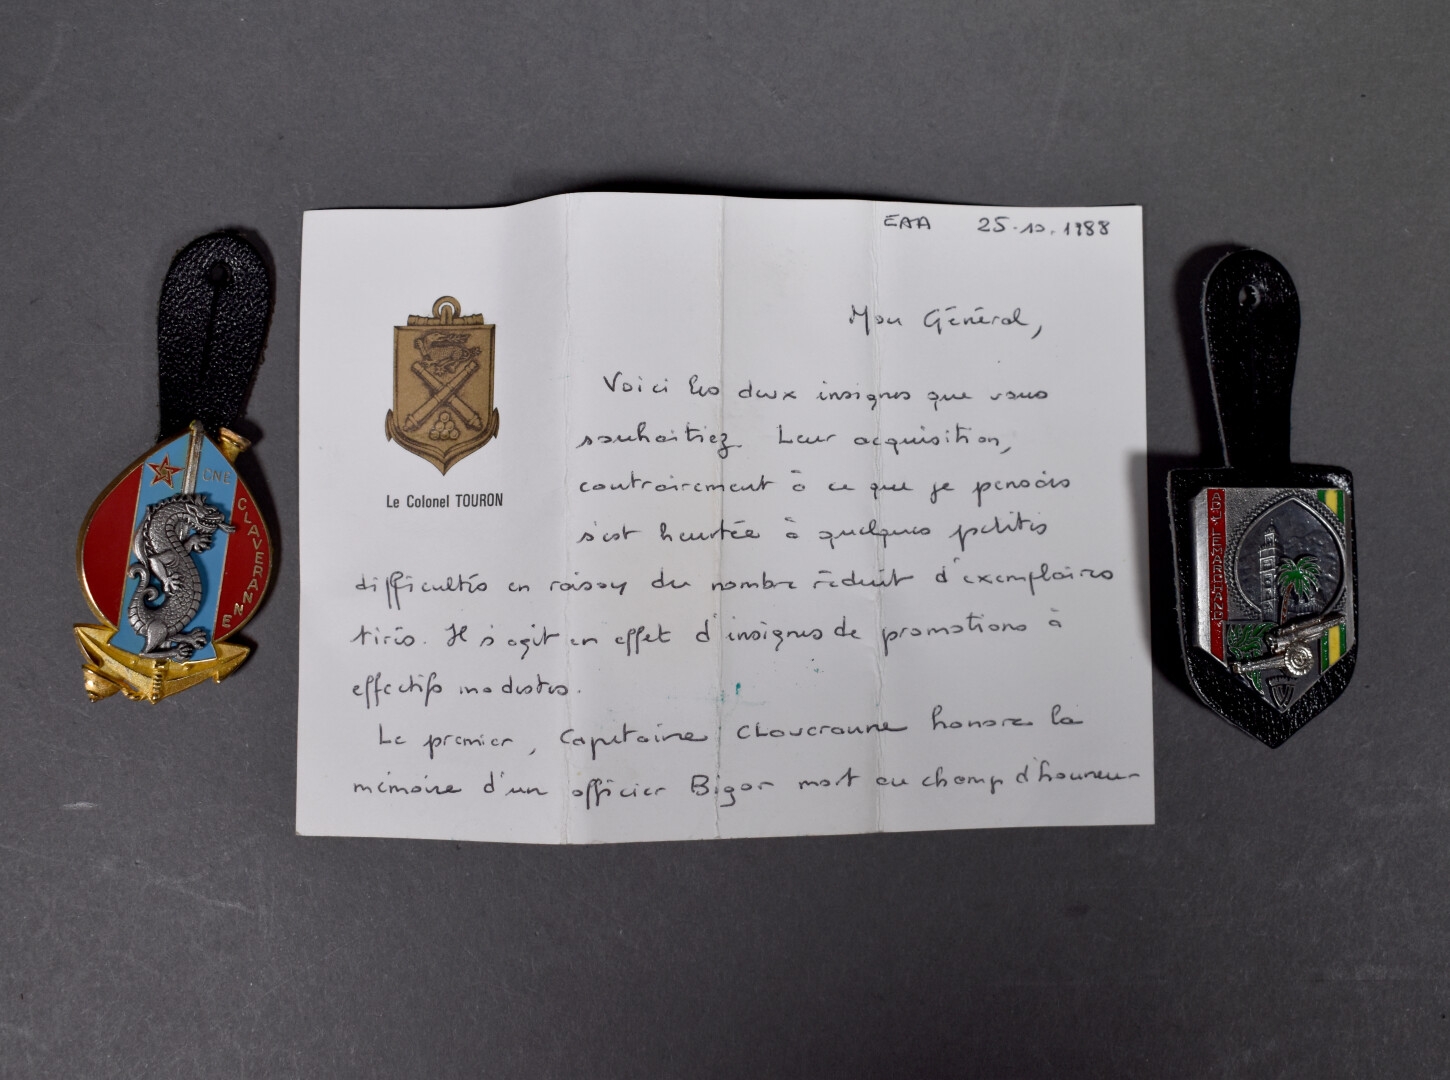 EAA 25.10.1988
Mon Général,
Voici les deux insignes que vous
souhaitiez. Leur acquisition,
contrairement à ce que je pensais
s'est heurtée à quelques petites
difficultés en raison du nombre réduit d'exemplaires
tirés. Il s'agit en effet d'insignes de promotions à
effectifs modestes.
Le premier, Capitaine CLaveranne honore la
mémoire d'un officier Bigor mort au champ d'honneur
Le Colonel TOURON
CNE
CLAVERANNE